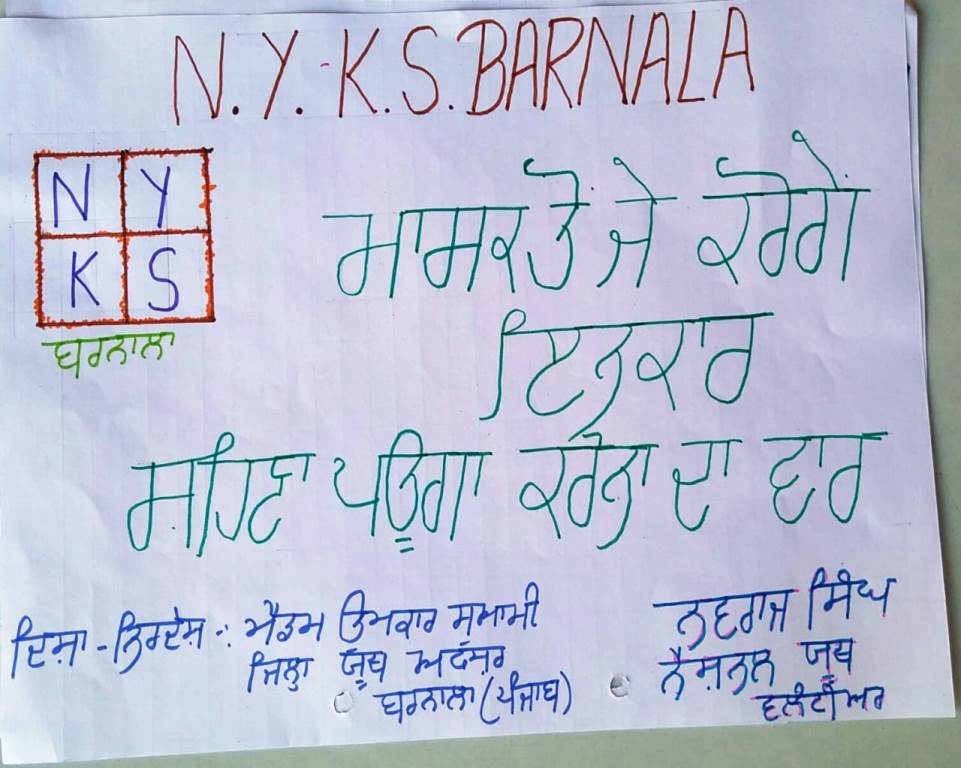 N.Y.K.S. BARNALA
N Y
K S
ਬਰਨਾਲਾ
ਮਾਸਕ ਤੋਂ ਜੇ ਕਰੋਗੇਂ
ਇਨਕਾਰ
ਸਹਿਣਾ ਪਊਗਾ ਕਰੋਨਾ ਦਾ ਵਾਰ
ਦਿਸ਼ਾ-ਨਿਰਦੇਸ਼ :- ਮੈਡਮ ਓਮਕਾਰ ਸੁਆਮੀ
ਜਿਲ੍ਹਾ ਯੂਥ ਅਫਸਰ
ਬਰਨਾਲਾ (ਪੰਜਾਬ)
ਨਵਰਾਜ ਸਿੰਘ
ਨੈਸ਼ਨਲ ਯੂਥ
ਵਲੰਟੀਅਰ